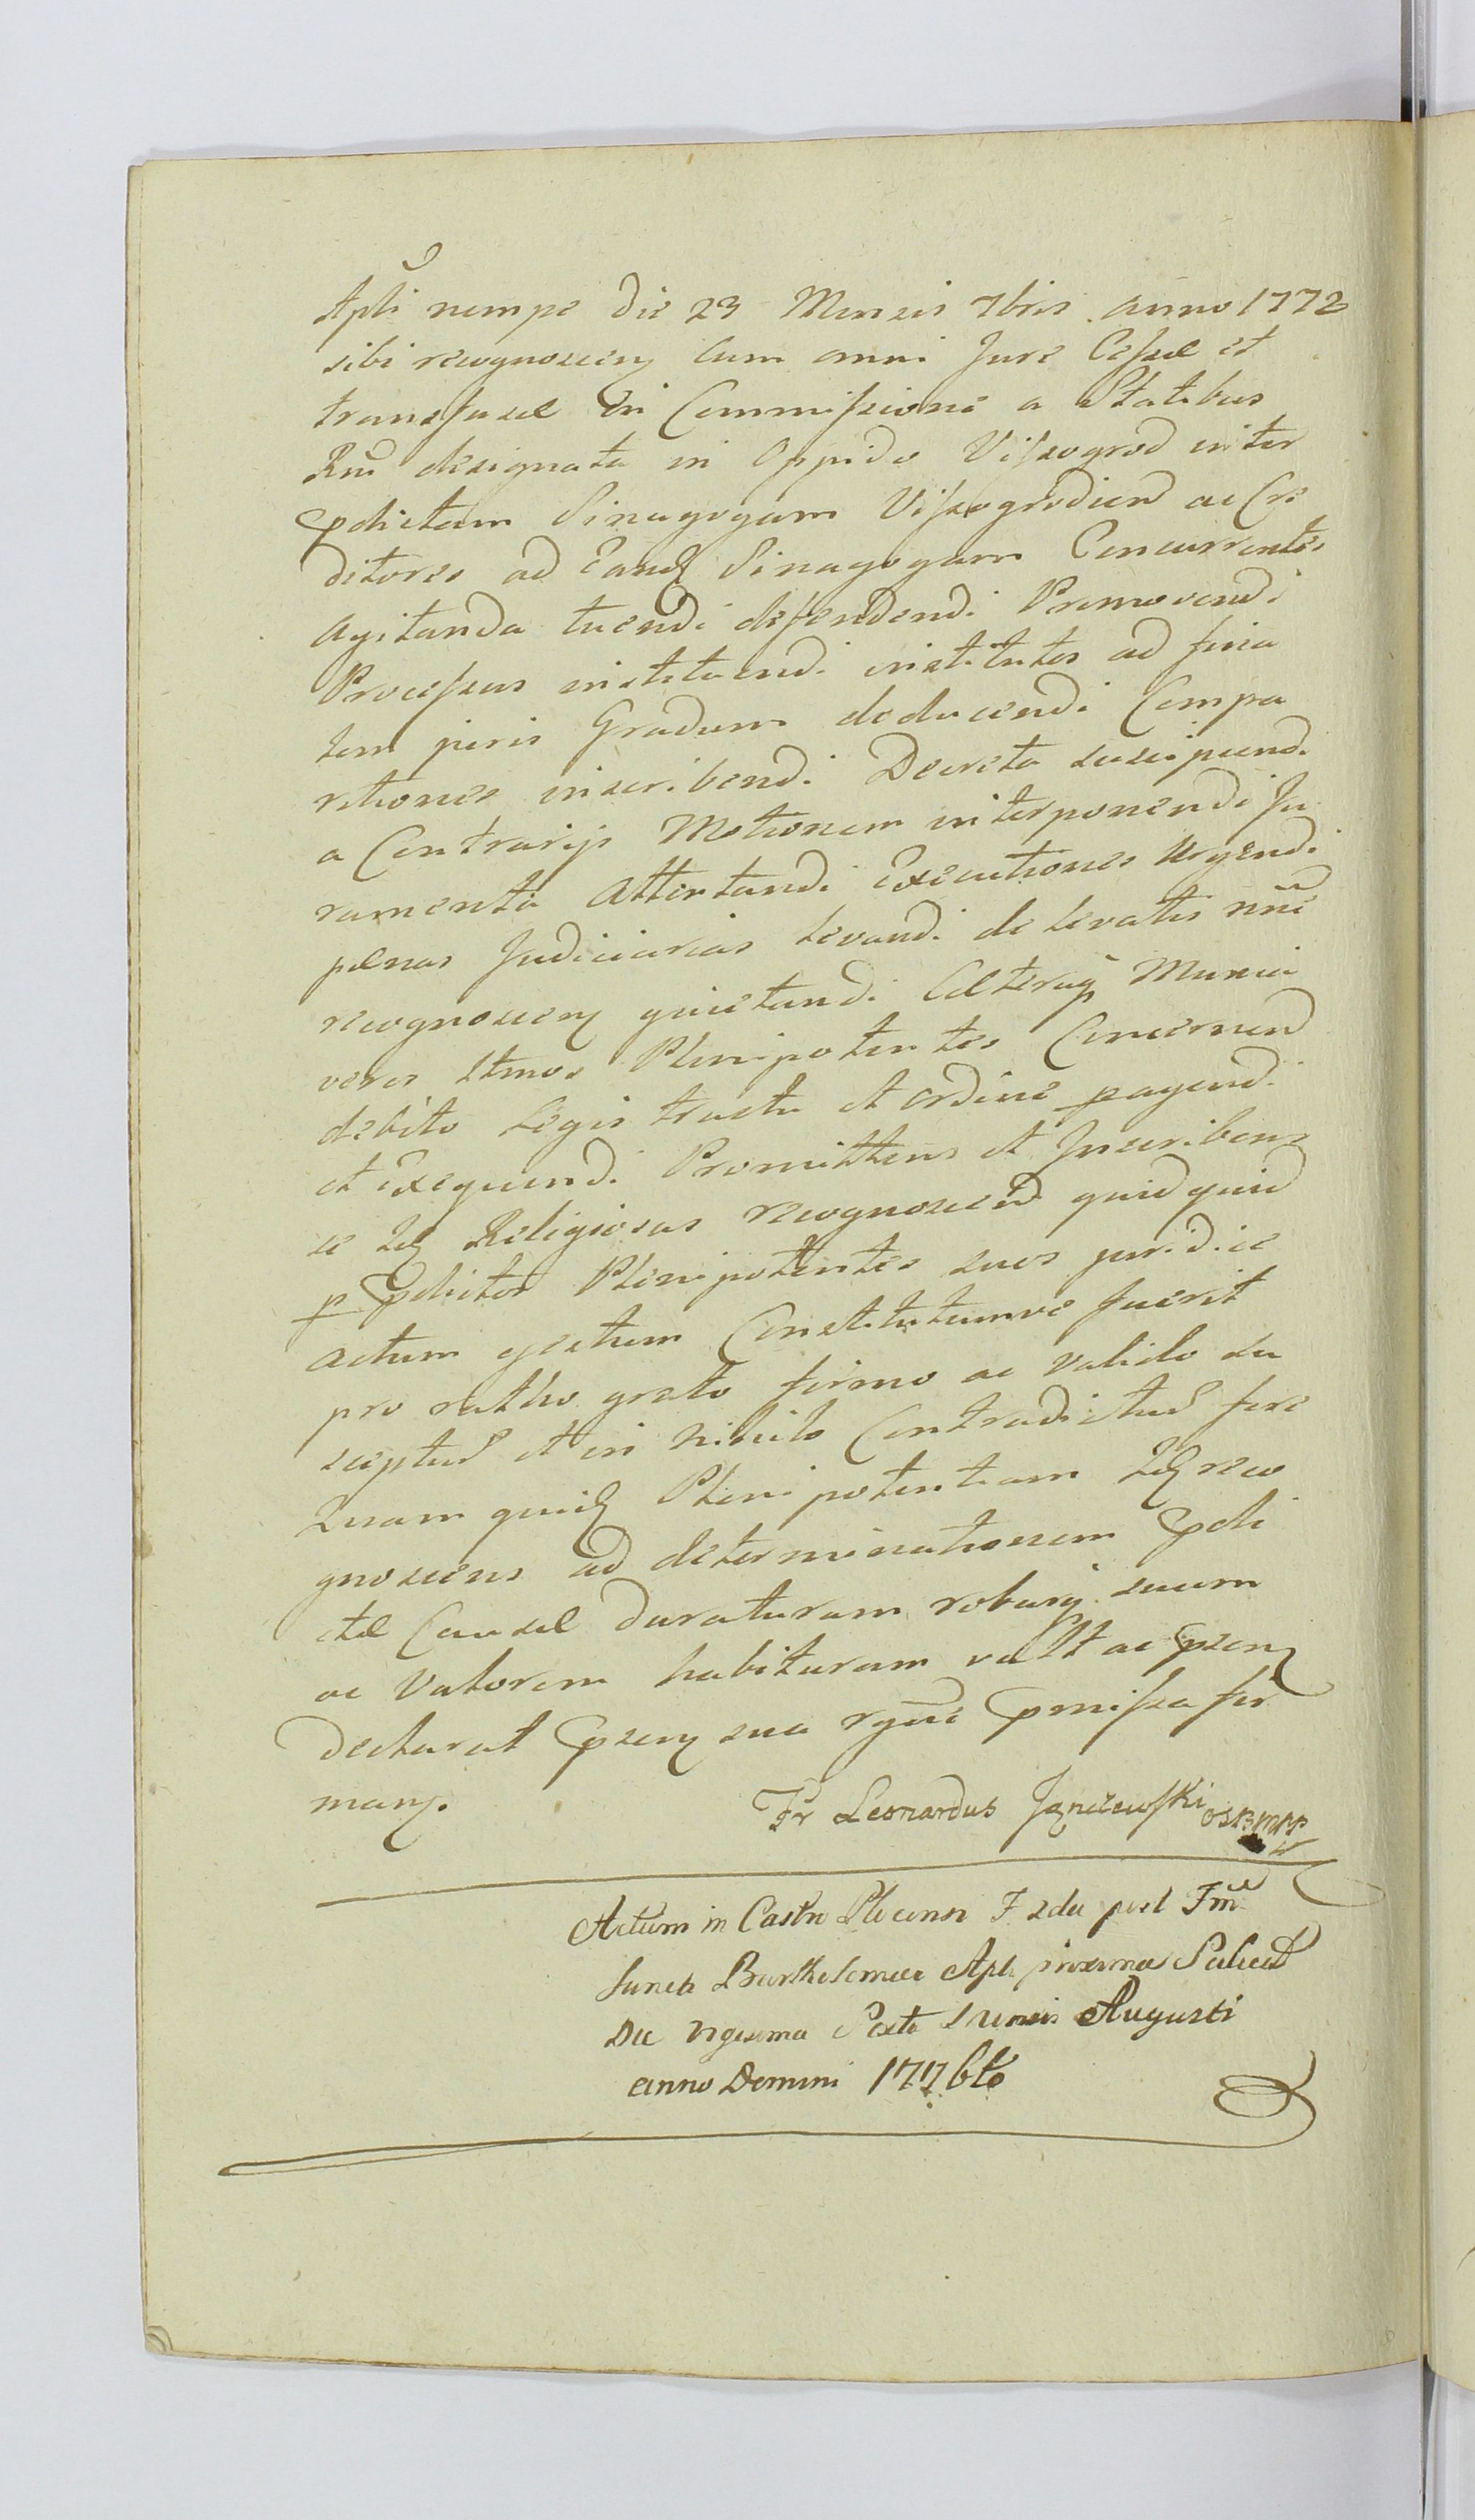 Apli nempe die 23 Mensis 7bris anno 1772
sibi recognoscen cum omni Jure Cessæ et
transfusæ in Commissione a Statibus
Rm designata in Oppido Vissogrod inter
pdictam Sinagogam Vissogrodien ac Cre
ditores ad Eand Sinagogam Concurrentes
agitanda tuendi defendendi Promovendi
Processus instituendi institutos ad fina
lem juris Gradum deducendi Compa
ritiones inscribendi Decreta suscipiendi
a Contrarijs Motionem interponendi Ju
ramenta attentandi Executiones Urgendi
pænas Judiciarias levandi de levatis nne
recognoscen quietandi Cæteraq Munia
veros ltmos Plenipotentes Concernen
debito Legis tractu et ordine pagendi
et Exequendi. Promittens et Inscribens
se Idq Religiosus recognoscen quidquid
p pdictos Plenipotentes suos juridice
actum gestum Constitutumve fuerit
pro ratho grato firmo ac valido su
scepturus et in nihilo Contradicturus fore
Quam quid Plenipotentiam Idq reco
gnoscens ad determinationem pdi
ctæ Causæ duraturam roburq suum
ac Valorem habituram vult ac psen
declarat psen sua rgne pmissa fir
man.
Fr Leonardus Janczewski OSBMPP
Actum in Castro Plocensi F 2da post Fm
Sancti Bartholomæi Apli proxima Scilicet
Die vigesima Sexta Mensis Augusti
anno Domini 1776to